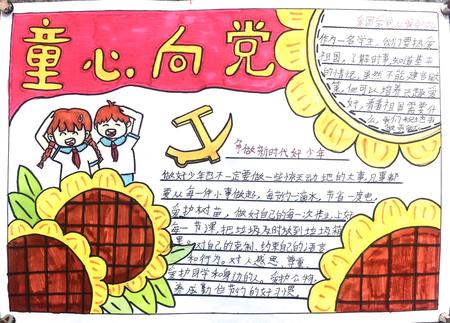 童心向党
作为一名学生,我们要热爱
祖国,了解时事,知道基本
的情况,虽然不能建言献
策,但可以培养兴趣爱
好,看看祖国需要什
么,我们就
争做新时代好少年
做好少年也不一定要做一些惊天动地的大事,只事都
要从每一件小事做起,每节约一滴水,节省一度电,
爱护树苗,做好自己的每一次作业,上好
每一节课,把垃圾及时放到垃圾箱
里。对自己的克制,约束自己的语言
和行为。对人感恩,尊重
爱护同学和身边的人。爱护公物,
养成勤俭节约的好习惯,